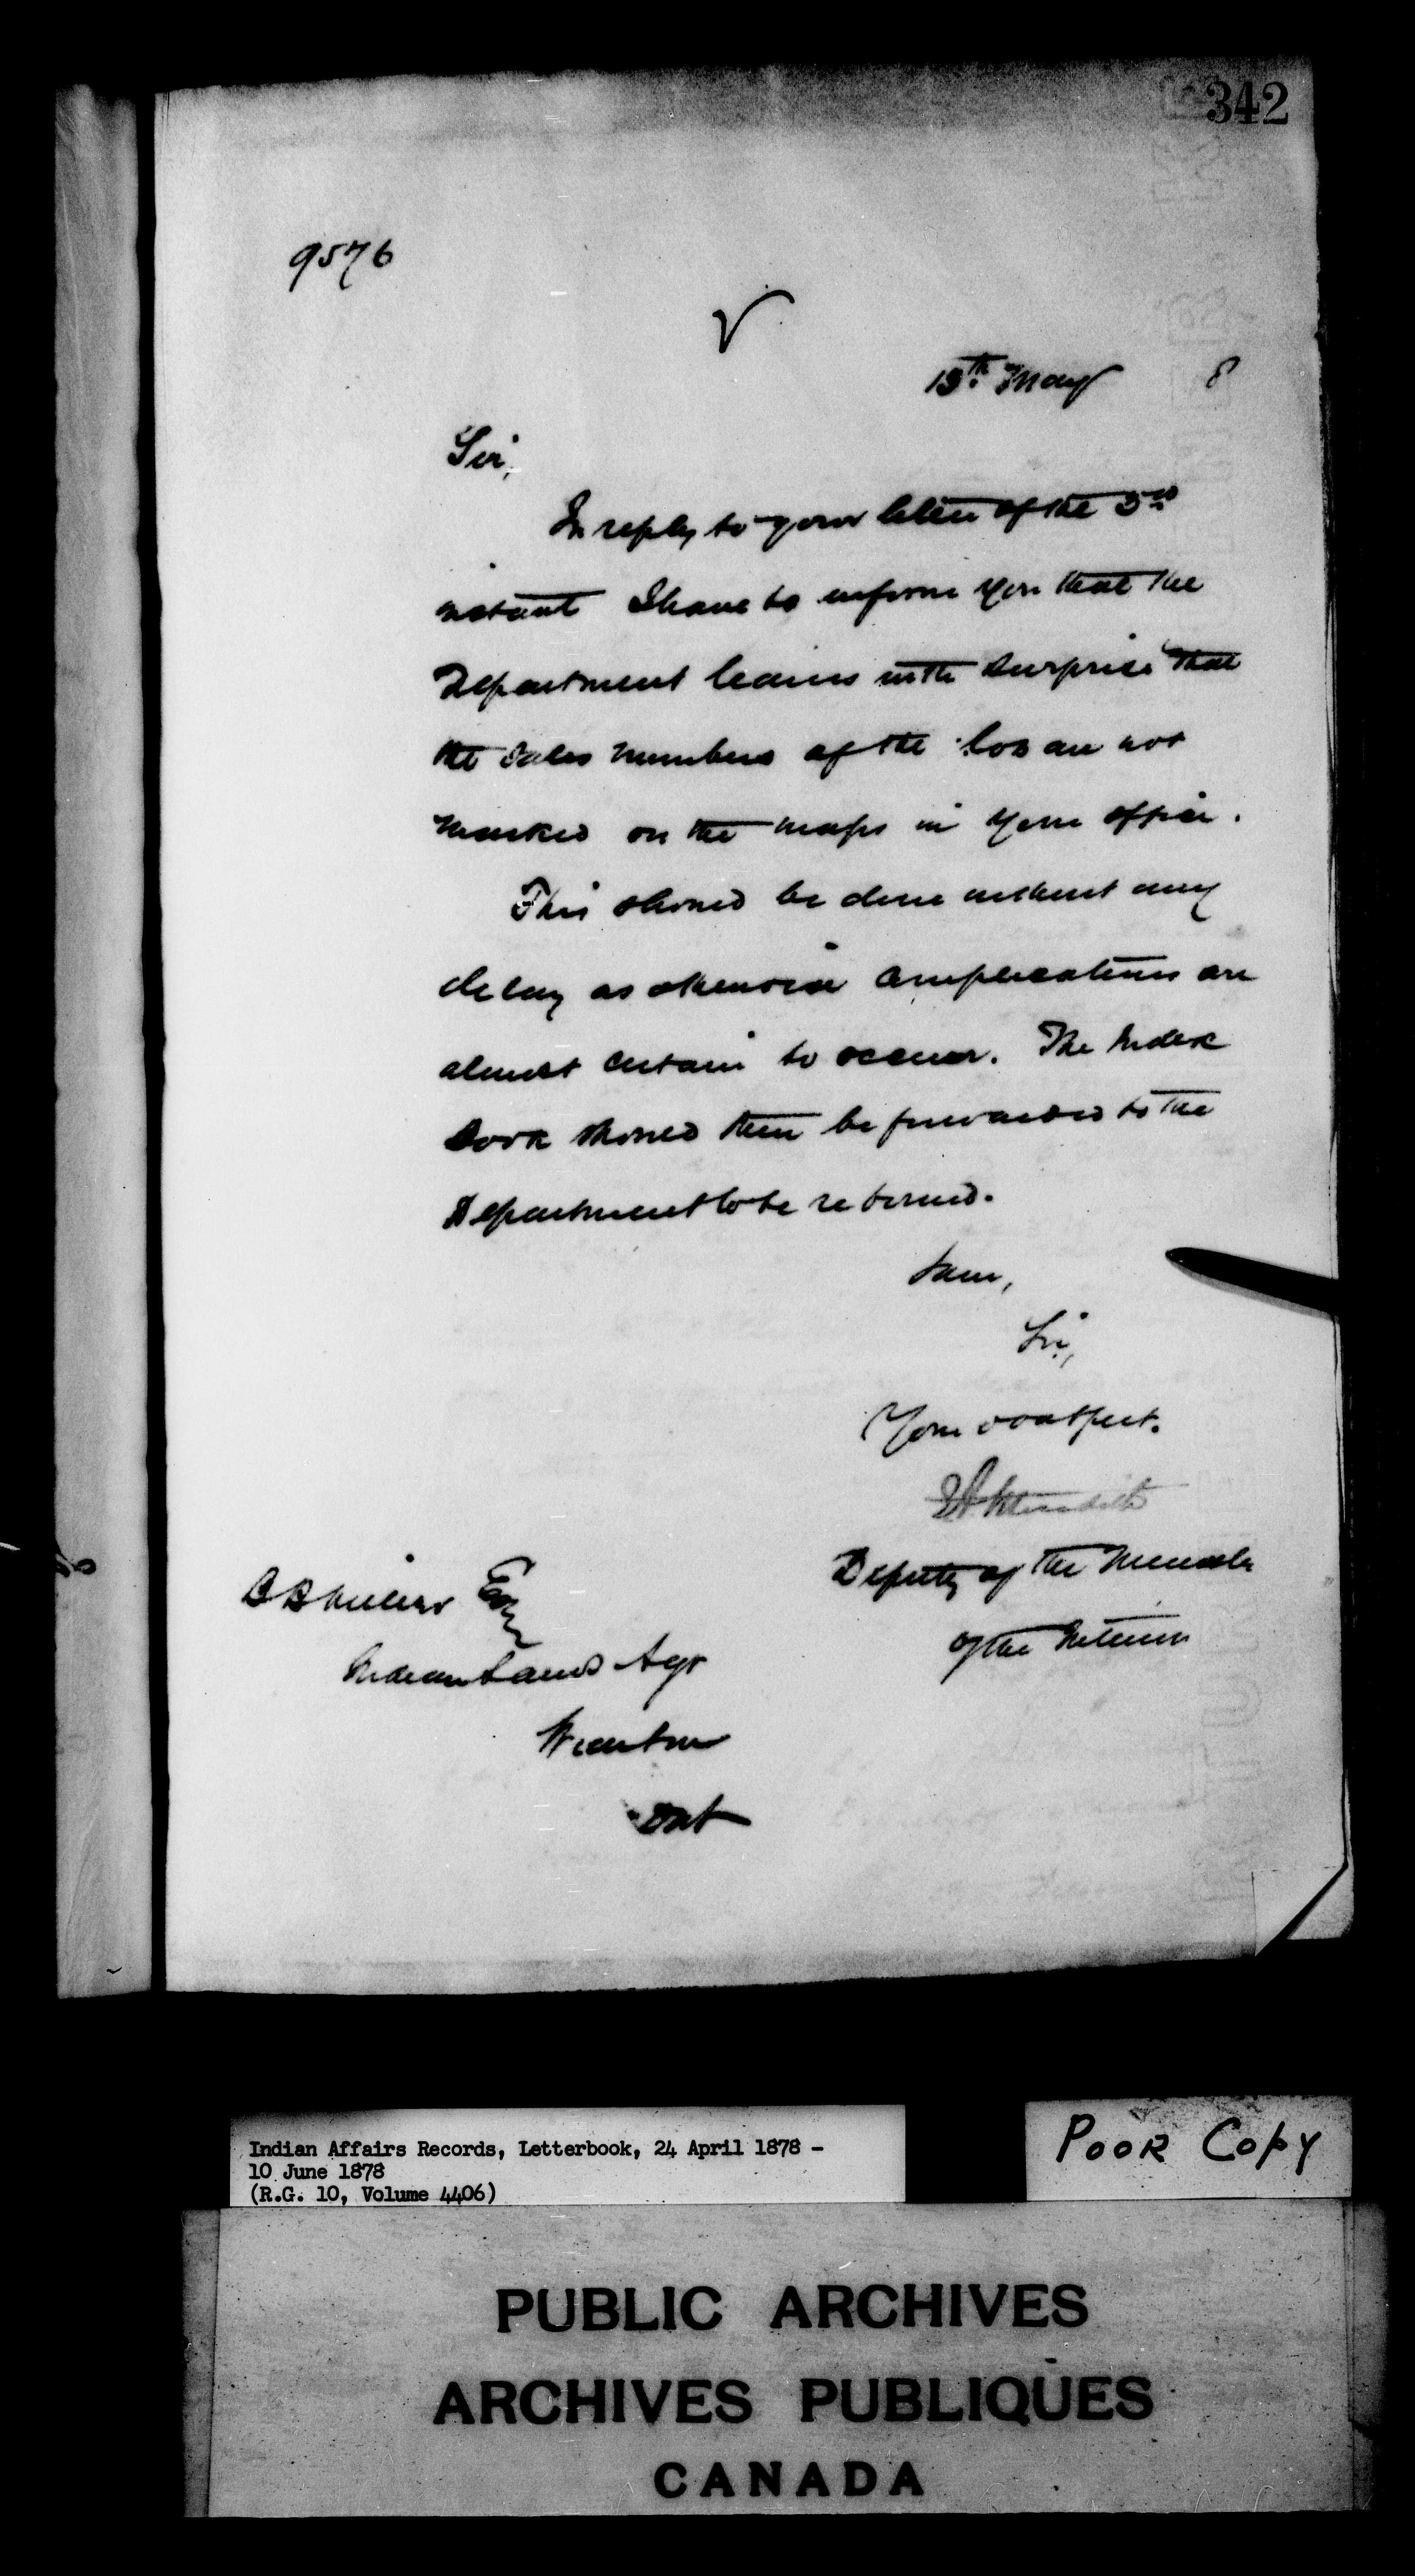 342
9576
15th May 8
Sir,
In reply to your letter of the 3rd
instant I have to inform you that the
Department learns with surprise that
the Sales numbers of the lots are not
marked on the maps in your office.
This should be done without any
delay as otherwise complications are
almost certain to occur. The Index
book should then be forwarded to the
Department to be returned.
I am,
Sir,
Your obdt Servt.
Deputy of the Minister
of the Interior
B B Miller Esq
Indian Lands Agt
Wiarton
Ont
Indian Affairs Records, Letterbook, 24 April 1878 -
10 June 1878
(R.G. 10, Volume 4406)
POOR COPY
PUBLIC ARCHIVES
ARCHIVES PUBLIQUES
CANADA